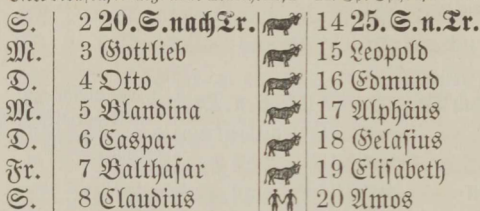 S. 2 20. S. nach Tr. 14 25. S. n. Tr.
M. 3 Gottlieb 15 Leopold
D. 4 Otto 16 Edmund
M. 5 Blandina 17 Alphäus
D. 6 Caspar 18 Gelaſius
Fr. 7 Balthaſar 19 Eliſabeth
S. 8 Claudius 20 Amos